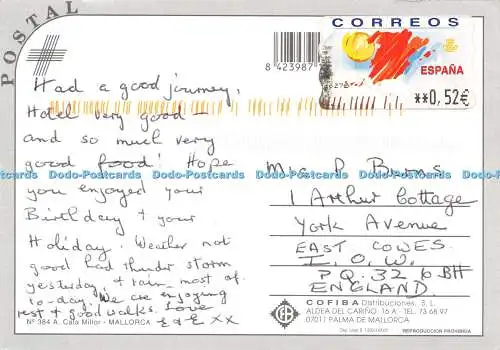 POSTAL
CORREOS
ESPAÑA
**0,52€
8 423987
Had a good journey.
Hotel very good —
and so much very
good food! Hope
you enjoyed your
Birthday & your
Holiday. Weather not
good had thunder storm
yesterday, & rain most of
to-day. We are enjoying
rest & good walks. Love
E & E xx
Mrs P Burns
1 Arthur Cottage
York Avenue
EAST COWES.
I.O.W.
P.Q. 32 6BH
ENGLAND
Nº 384 A. Cala Millor - MALLORCA
COFIBA Distribuciones, S.L.
ALDEA DEL CARIÑO, 16 A - TEL. 73 68 97
07011 PALMA DE MALLORCA
REPRODUCCION PROHIBIDA
Dodo-Postcards Dodo-Postcards Dodo-Postcards Dodo-Postcards Dodo-Postcards Dodo-Postcards